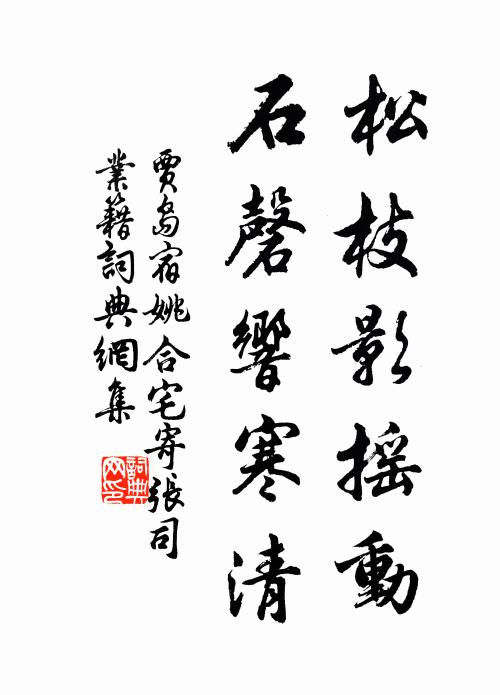 松枝影摇動
石磬響寒清
賈島宿姚合宅寄張司
業籍詞典網集
詞典
网印